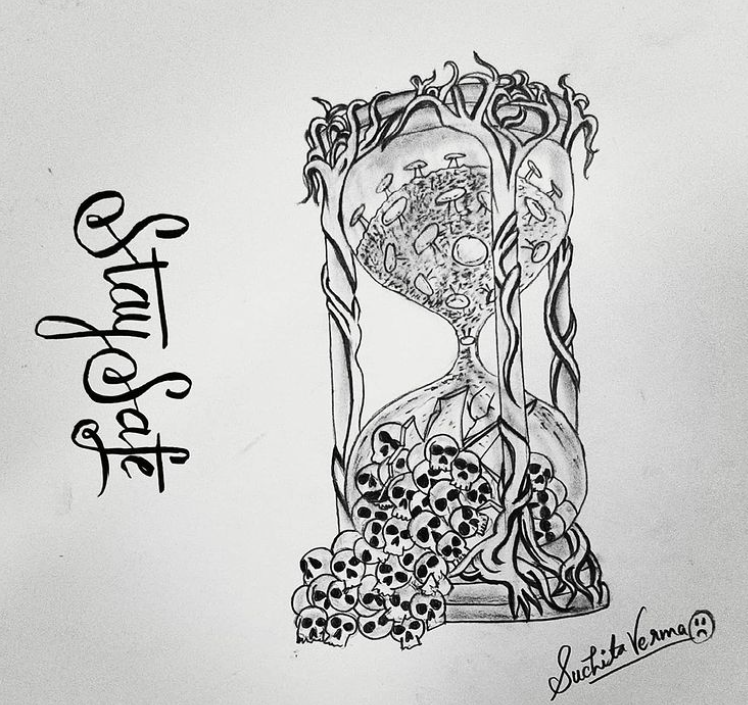 Stay Safe
Suchita Verma